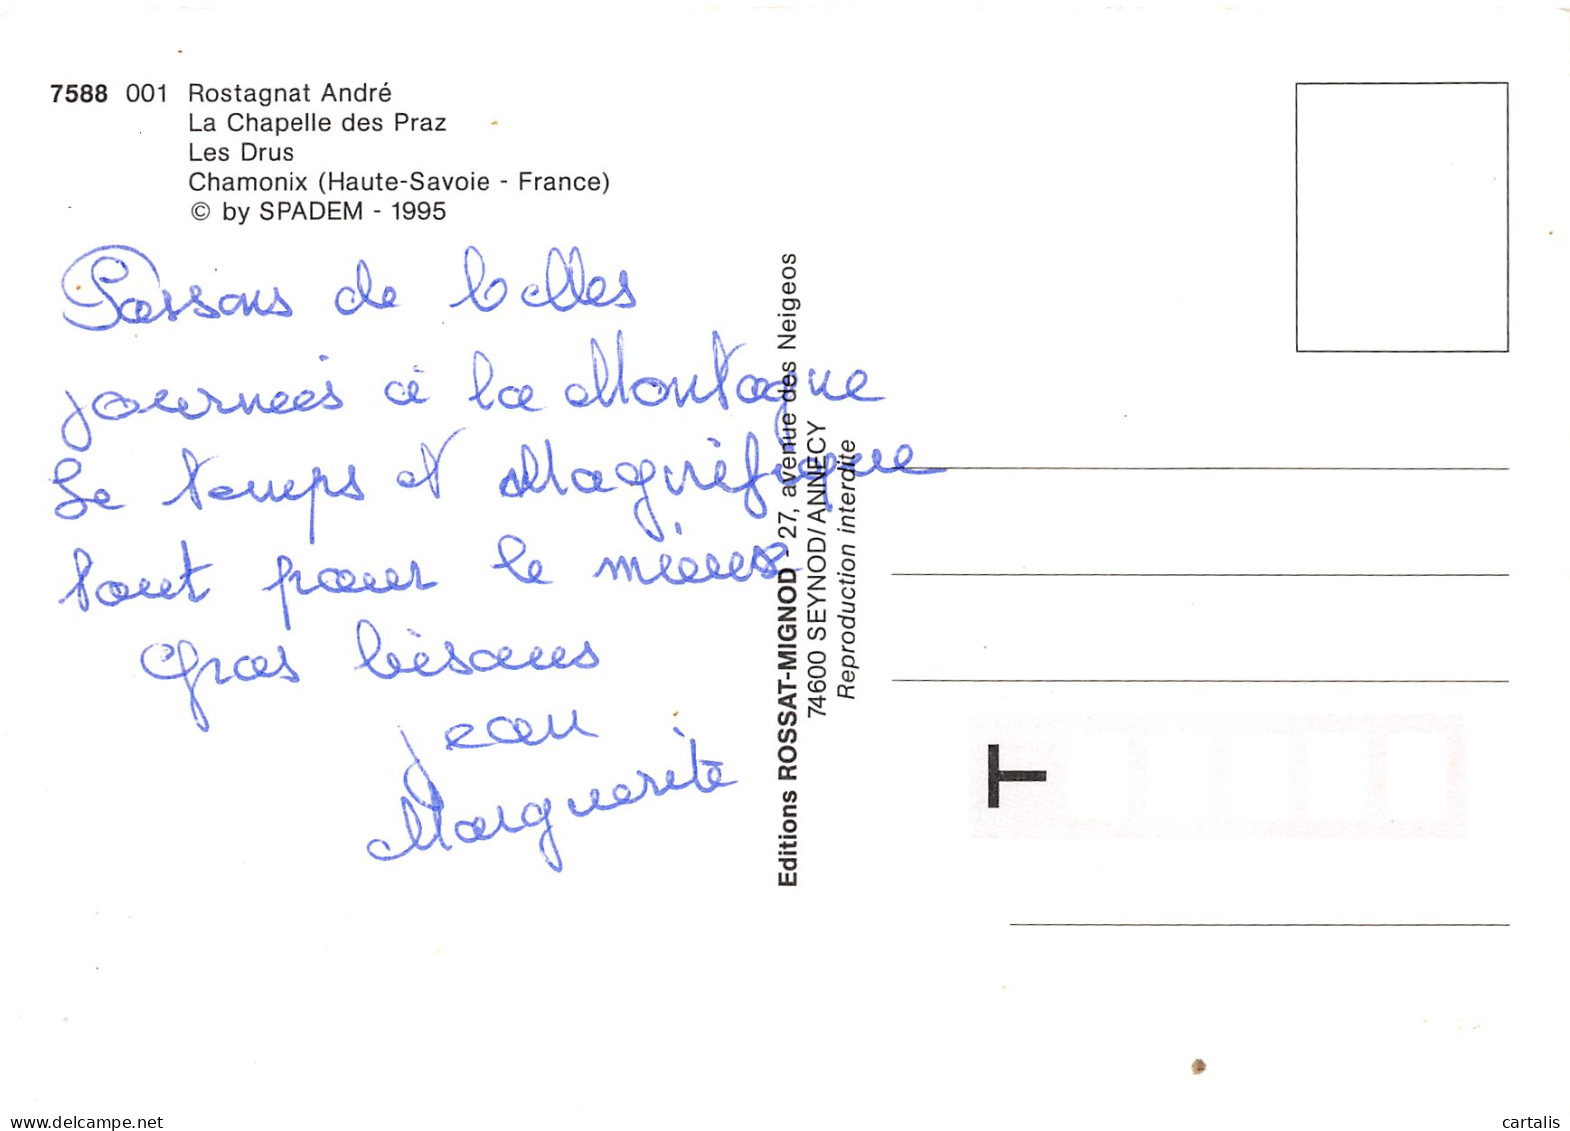 7588 001 Rostagnat André
La Chapelle des Praz
Les Drus
Chamonix (Haute-Savoie - France)
© by SPADEM - 1995
Passons de belles
journeés à la Montagne
Le temps et Magnifique
tout pour le mieux
Gros bisous
jean
Marguerite
Editions ROSSAT-MIGNOD - 27, avenue des Neigeos
74600 SEYNOD/ANNECY
Reproduction interdite
T
delcampe.net
cartalis